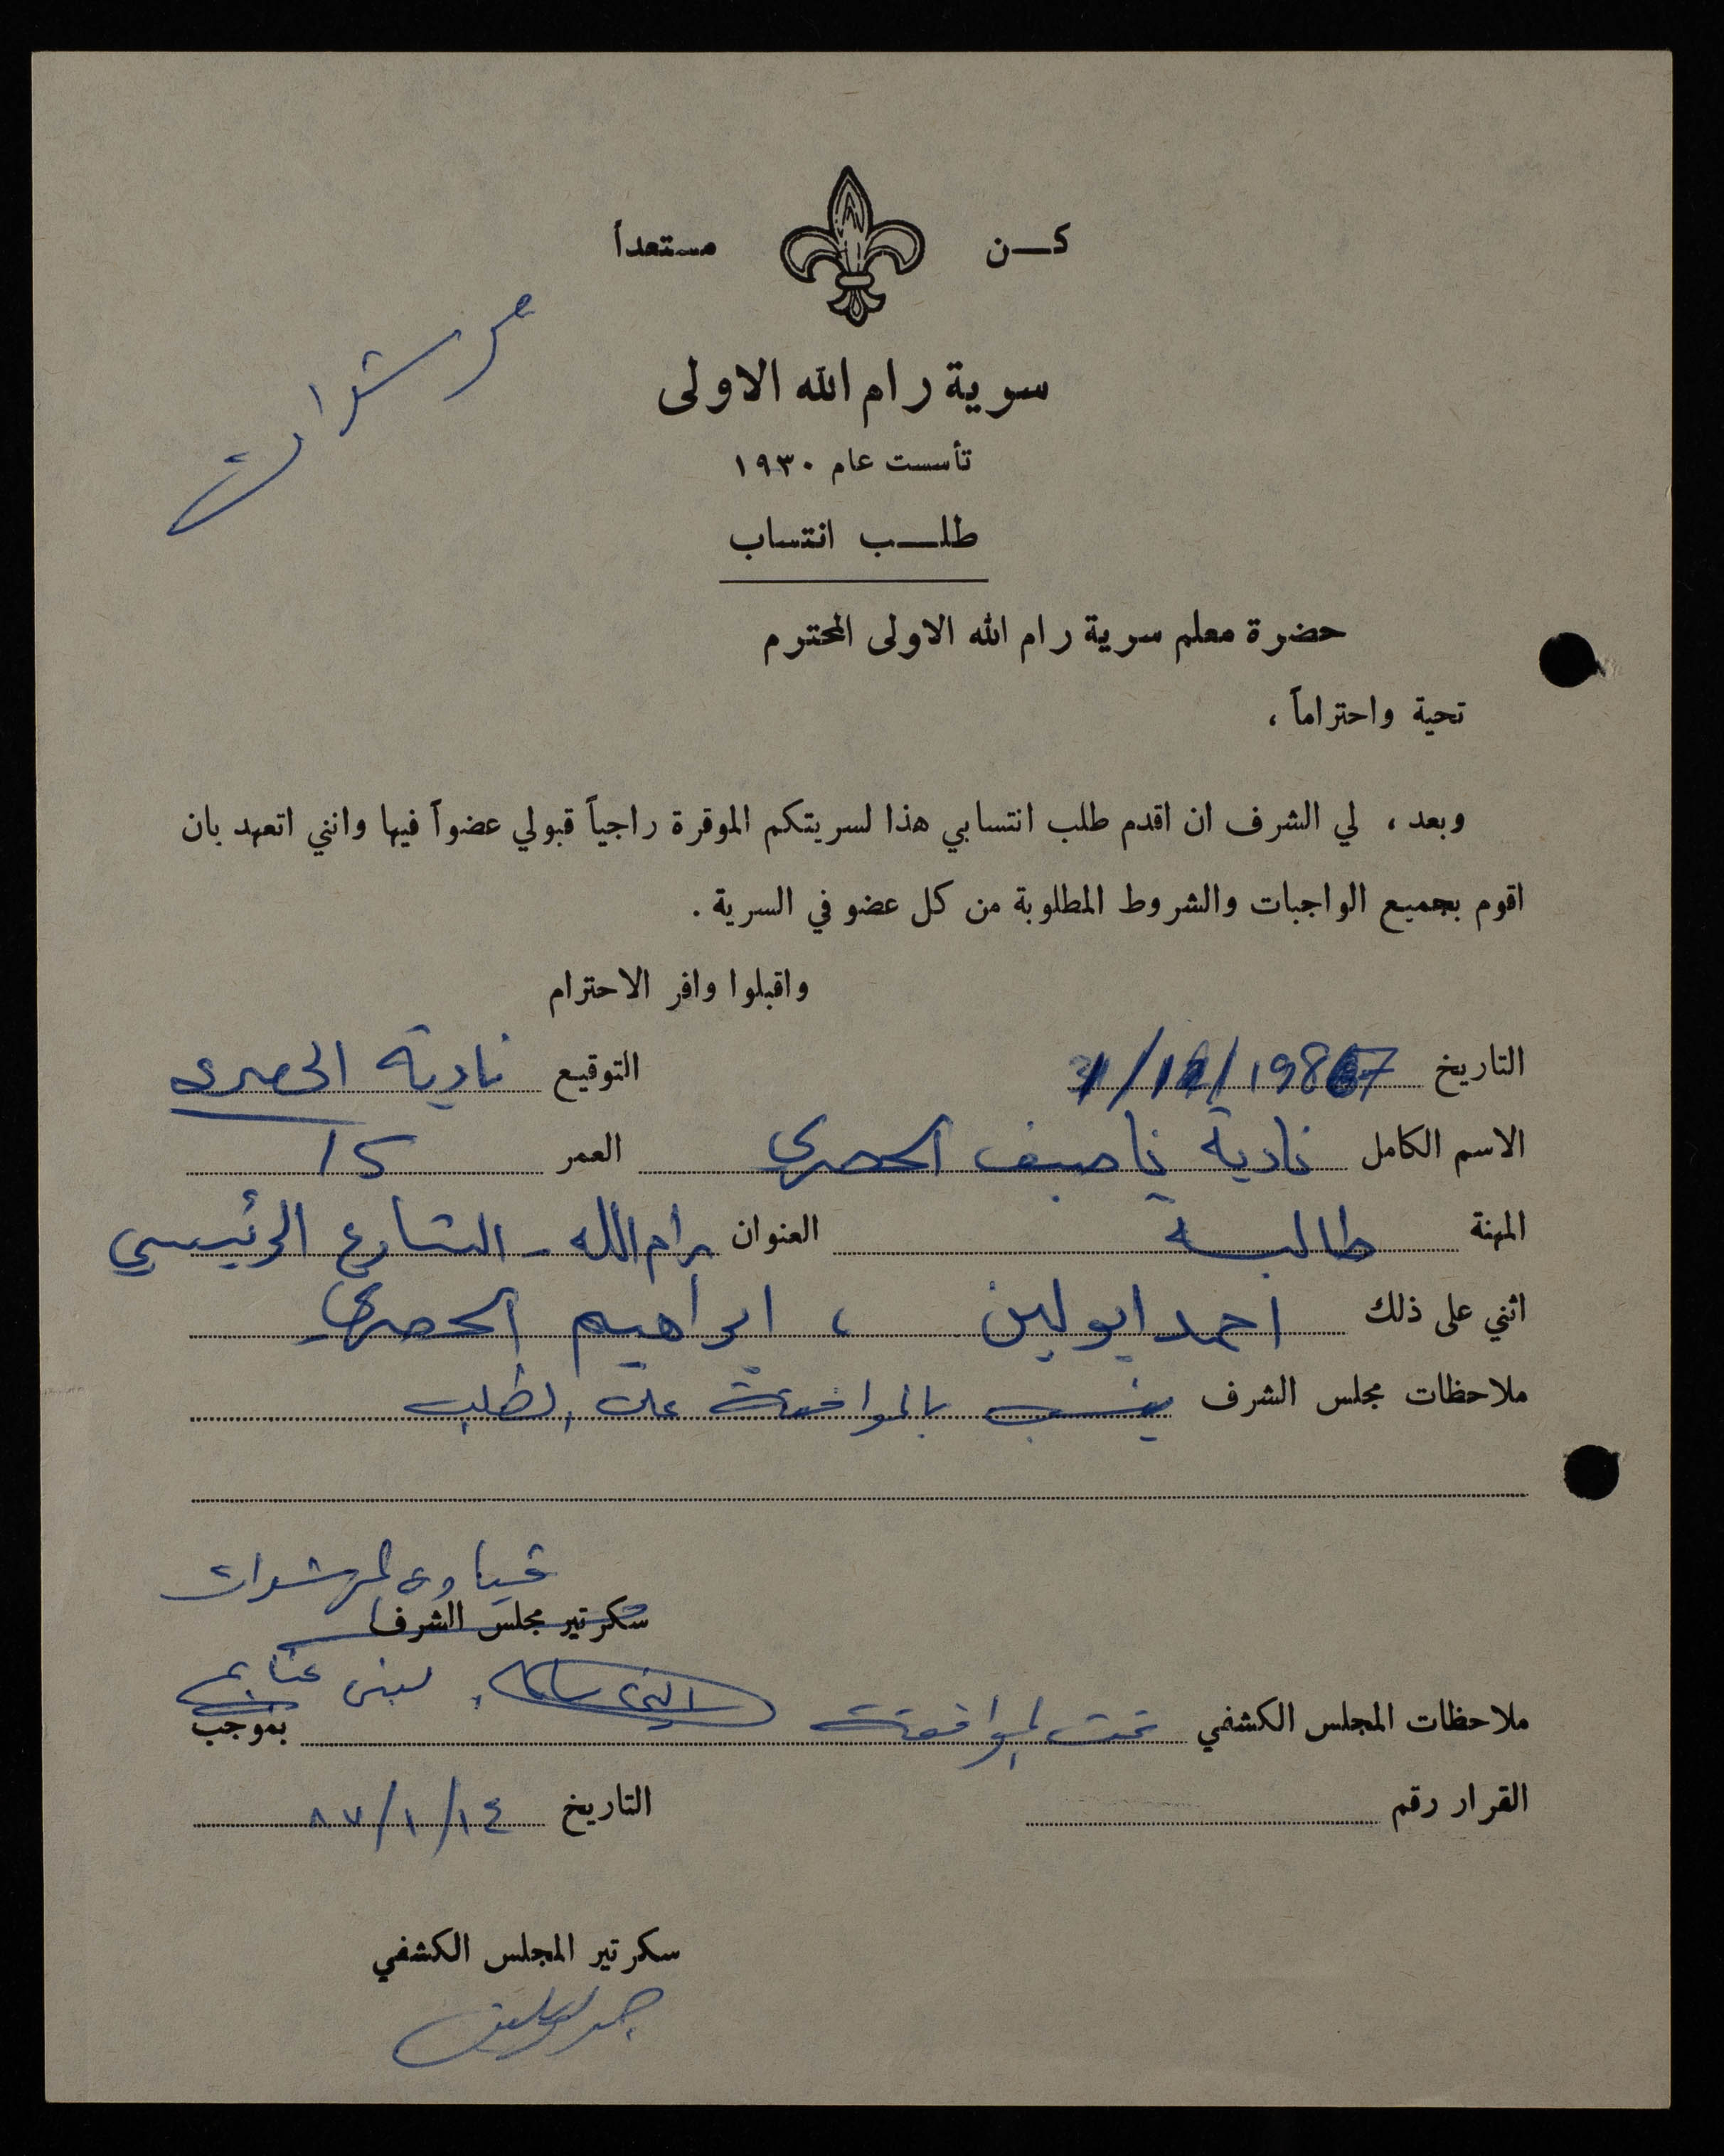 كن مستعداً
مرشدات
سرية رام الله الاولى
تأسست عام ١٩٣٠
طلب انتساب
حضرة معلم سرية رام الله الاولى المحترم
تحية واحتراماً ،
وبعد ، لي الشرف ان اقدم طلب انتسابي هذا لسريتكم الموقرة راجياً قبولي عضواً فيها وانني اتعهد بان
اقوم بجميع الواجبات والشروط المطلوبة من كل عضو في السرية .
واقبلوا وافر الاحترام
التاريخ 1987 التوقيع نادية الحصري
الاسم الكامل نادية ناصيف الحصري العمر 15
المهنة طالبه العنوان رام الله - الشارع الرئيسي
اثني على ذلك احمد ابو لبن ، ابراهيم الحصري
ملاحظات مجلس الشرف ينسب بالموافقة على الطلب
المرشدات
سكرتير مجلس الشرف
لبنى
ملاحظات المجلس الكشفي تمت الموافقة بموجب
القرار رقم التاريخ ٨٧/١/١٤
سكرتير المجلس الكشفي